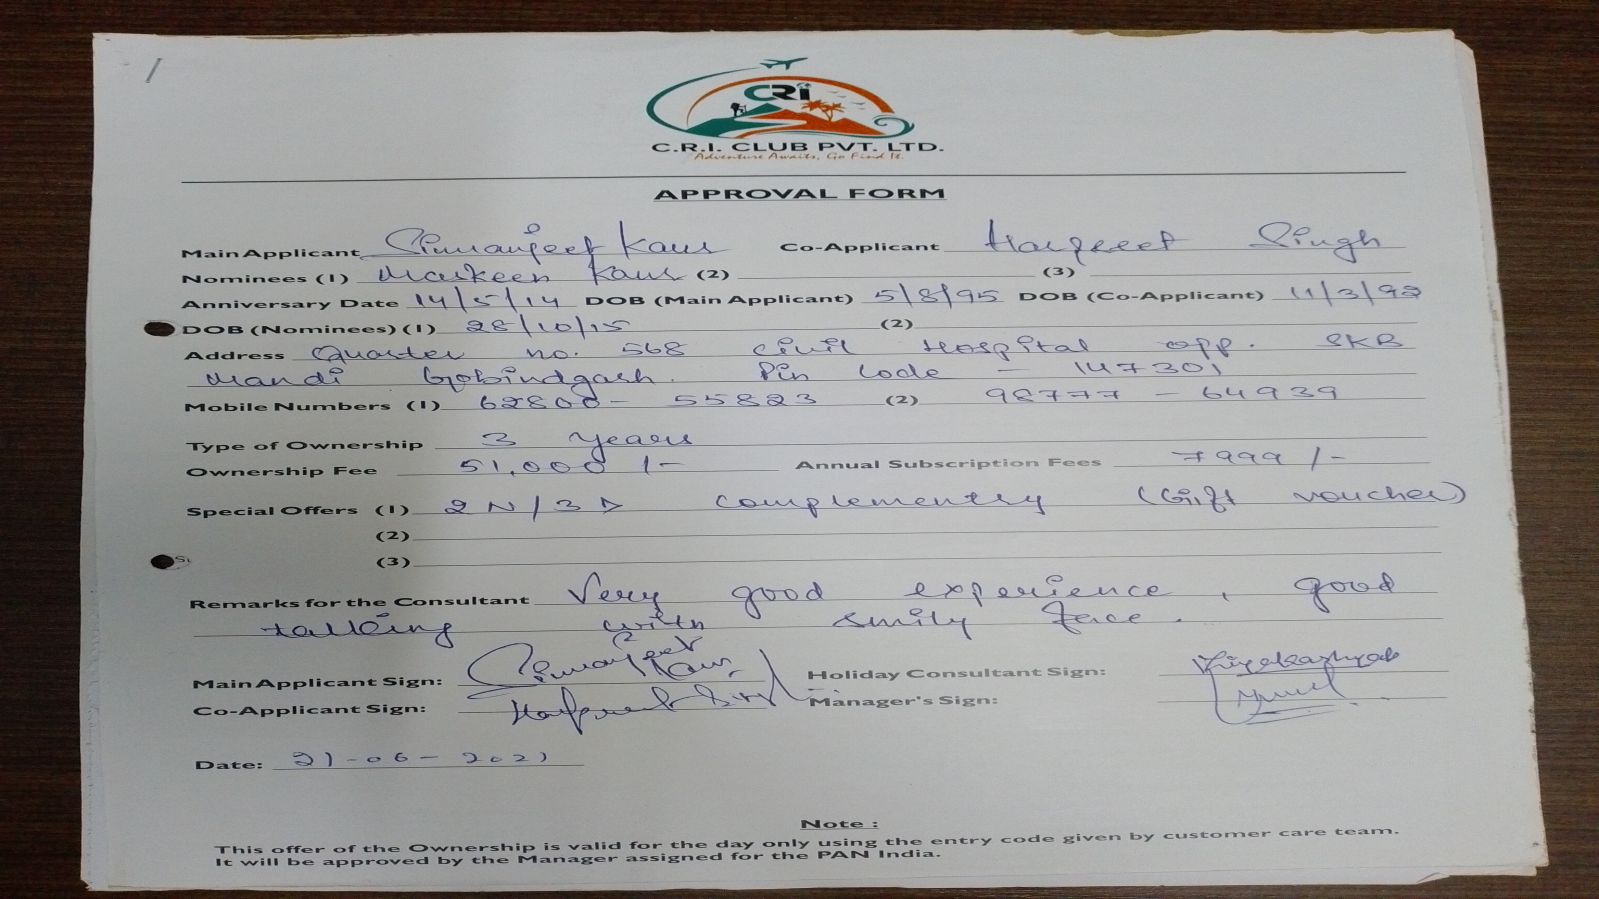 CRI
C.R.I. CLUB PVT. LTD.
Adventure Awaits, Go Find It.
APPROVAL FORM
Main Applicant Simranjeet Kaur Co-Applicant Harpreet Singh
Nominees (1) Maskeen Kaur (2) (3)
Anniversary Date 14/5/14 DOB (Main Applicant) 5/8/95 DOB (Co-Applicant) 11/3/92
DOB (Nominees) (1) 28/10/15 (2)
Address Quarter no. 568 Civil Hospital opp. SKB
Mandi Gobindgarh. Pin Code - 147301
Mobile Numbers (1) 62800-55823 (2) 98777-64939
Type of Ownership 3 Years
Ownership Fee 51,000/- Annual Subscription Fees 7999/-
Special Offers (1) 2N/3D Complementry (Gift voucher)
(2)
(3)
Remarks for the Consultant Very good experience, good
talking with smily face.
Main Applicant Sign: Simranjeet Kaur Holiday Consultant Sign:
Co-Applicant Sign: Harpreet Singh Manager's Sign:
Date: 21-06-2021
Note :
This offer of the Ownership is valid for the day only using the entry code given by customer care team.
It will be approved by the Manager assigned for the PAN India.